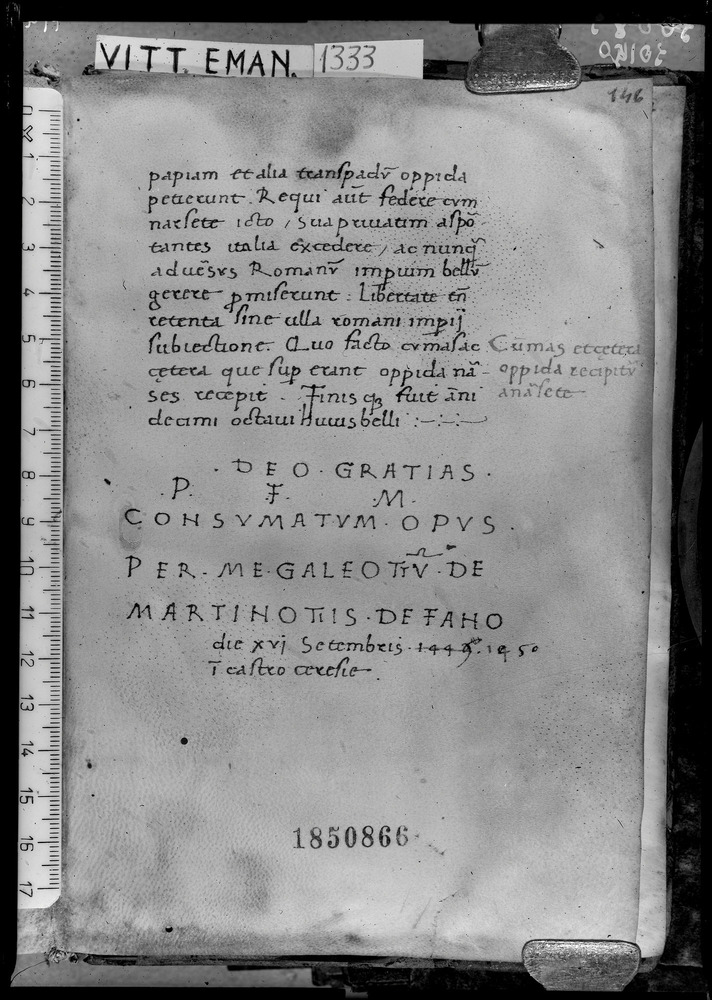 VITT. EMAN. 1333
146
papiam et alia transpadū oppida
petierunt. Requi aūt federe cvm
narsete icto / sua priuatim aspō
tantes italia excedere / ac nunq̄
aduersvs Romanv̄ impium bellv̄
gerere p̱miserunt : Libertate tn̄
retenta sine ulla romani impij
subiectione. Quo facto cvmas ac
cętera que sup erant oppida nā-
ses recepit. Finis qȝ fuit āni
decimi octaui huius belli :-:-:-
Cumas et cetera
oppida recipitv̄
a nāsete
. DEO . GRATIAS .
. P. F. M.
CONSVMATVM . OPVS .
PER . ME . GALEOTTV̄ . DE
MARTINOTTIS . DE FANO
die xvj Setembris 1449. 1450
ī castro ceresie
1850866
0 1 2 3 4 5 6 7 8 9 10 11 12 13 14 15 16 17